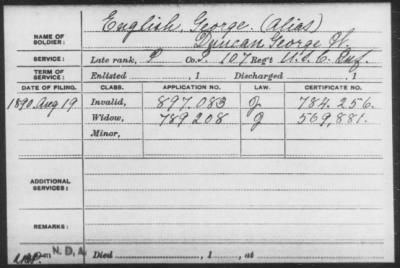 English, George. (Alias)
NAME OF SOLDIER: Duncan George H.
SERVICE: Late rank, P Co. I, 107 Regt U.S.C. Inf.
TERM OF SERVICE: Enlisted , 1 Discharged , 1
DATE OF FILING. CLASS. APPLICATION NO. LAW. CERTIFICATE NO.
1890 Aug 19 Invalid, 897.083 J 784.256.
Widow, 789208 J 569,881.
Minor,
ADDITIONAL SERVICES:
REMARKS:
N.D.A.
Died , 1 , at